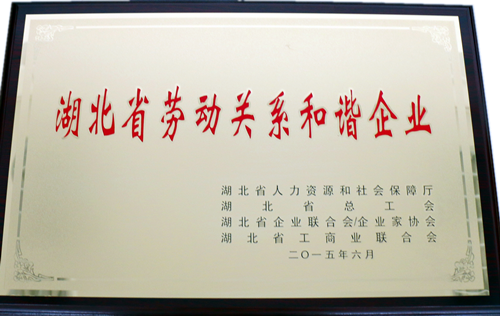 湖北省劳动关系和谐企业
湖北省人力资源和社会保障厅
湖北省总工会
湖北省企业联合会/企业家协会
湖北省工商业联合会
二〇一五年六月